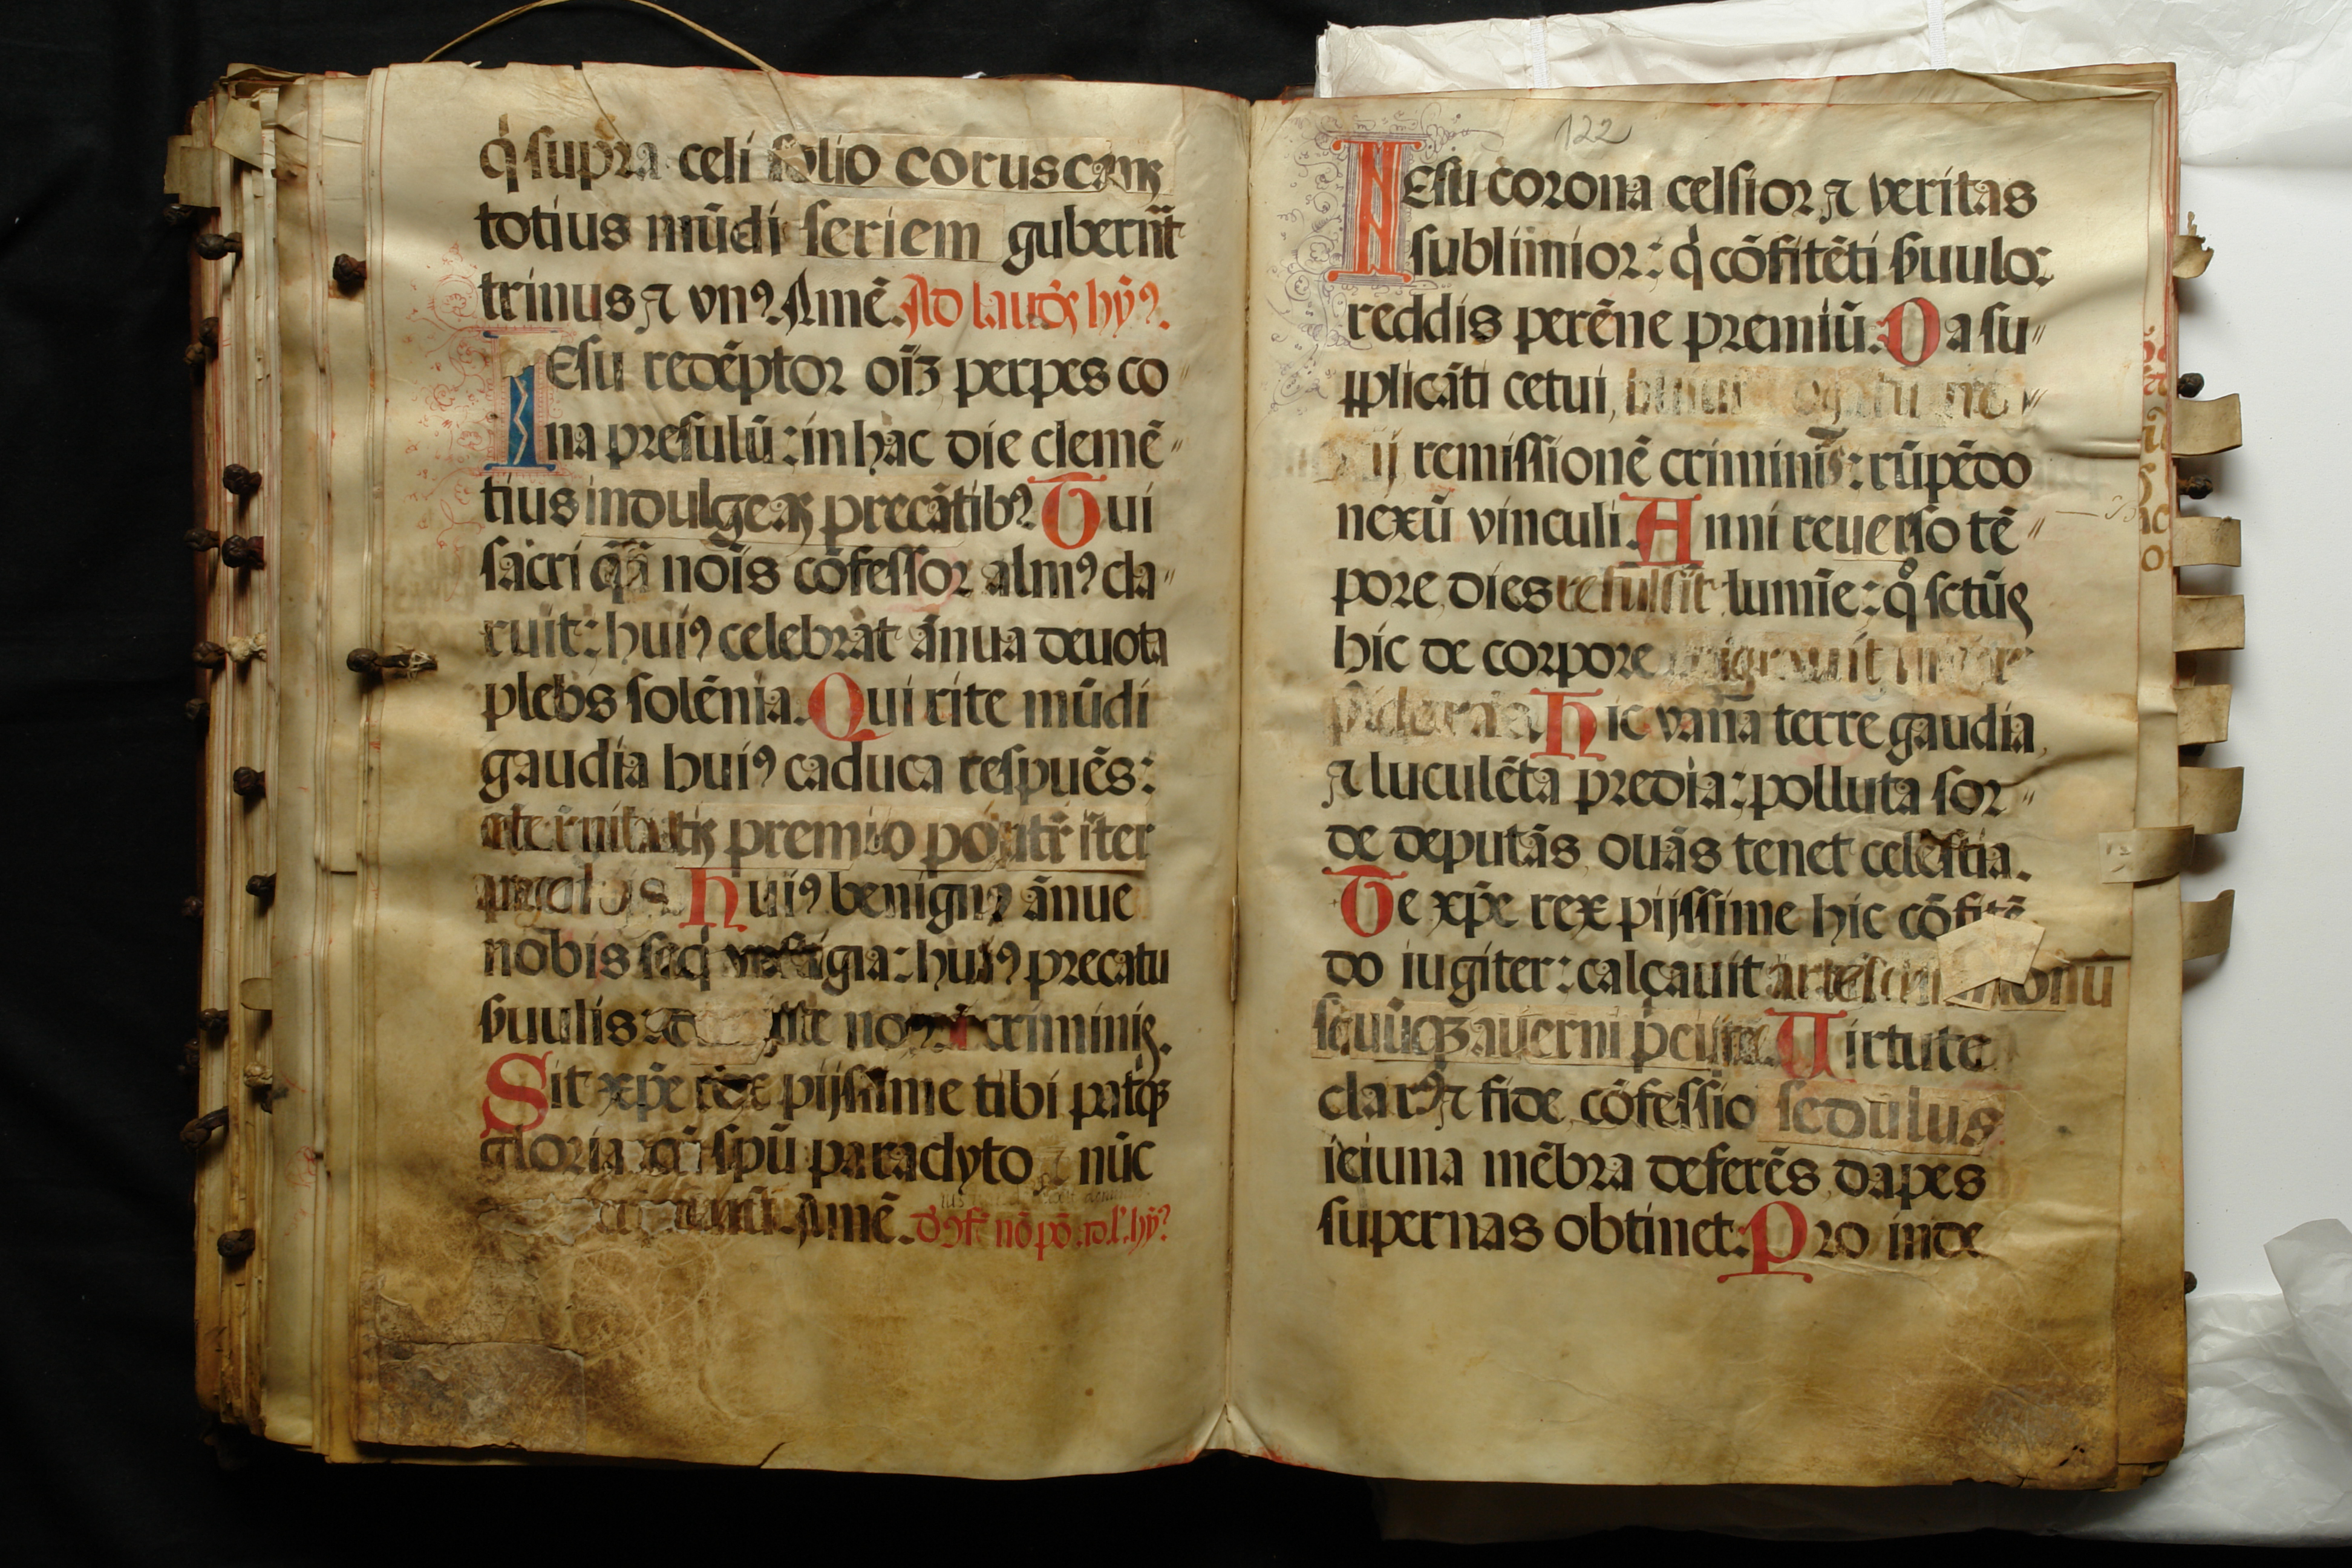 q̇ supra celi solio coruscans
totius mūdi seriem guberñt
trinus ⁊ vnꝰ. Amē. Ad laudes hỹꝰ.
IEsu redēptor oīʒ perpes co
na presulū: in hac die clemē
tius indulgeas precātibꝰ. Tui
sacri q̄ nōis cōfessor almꝰ cla
ruit: huiꝰ celebrat ānua deuota
plebs solēnia. Qui rite mūdi
gaudia huiꝰ caduca respuēs:
premio iter
Huiꝰ benignꝰ ānue
nobis seq̇ vestigia: huiꝰ precatu
ẜuulis criminis.
Sit xp̄e rex pijssime tibi patqʒ
gloria spū paraclyto ⁊ nūc
Amē. nō pō. hỹꝰ
122
IEsu corona celsior ⁊ veritas
sublimior: q̇ cōfitēti ẜuulo:
reddis perēne premiū. Da su
pplicāti cetui,
remissionē criminis: rūpēdo
nexū vinculi. Anni reuerso tē
pore, dies refulsit lumīe: qͦ sctūs
hic de corpore migrauit
sidera. Hic vana terre gaudia
⁊ luculēta predia: polluta sor
de deputās, ouās tenet celestia.
Te xp̄e rex pijssime hic cōfitē
do iugiter: calcauit artes
seuūqʒ auerni Uirtute
clarꝰ ⁊ fide, cōfessio sedulus
ieiuna mēbra deferēs, dapes
supernas obtinet. Pro inde